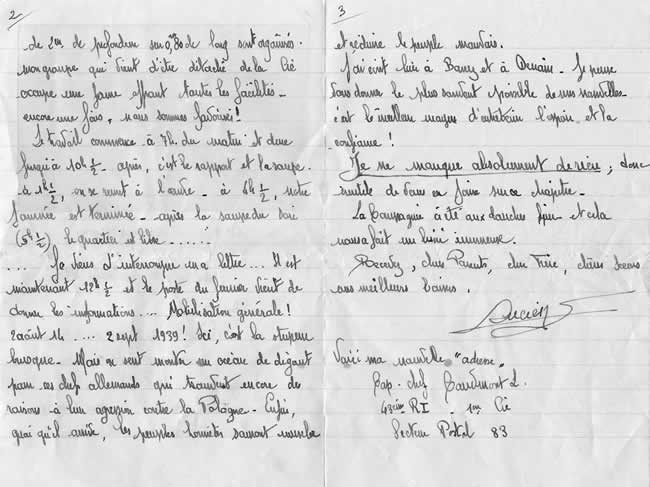 2
de 2m de profondeur sur 0,80 de long sont organisés.
mon groupe qui vient d'être détaché de la Cie
occupe une ferme offrant toutes les facilités -
encore une fois, nous sommes favorisés !
Le travail commence à 7h. du matin et dure
jusqu'à 10h 1/2 - après, c'est le rapport et la soupe.
à 1h 1/2, on se remet à l'œuvre - à 4h 1/2, notre
journée est terminée - après la soupe du soir
(5h 1/2) le quartier est libre ......
.... Je viens d'interrompre ma lettre ... Il est
maintenant 12h 1/2 et le poste du fermier vient de
donner les informations .... Mobilisation générale !
2 août 14 .... 2 sept 1939 ! Ici, c'est la stupeur
brusque - Mais on sent monter un océan de dégoût
pour ces chefs allemands qui trouvent encore des
raisons à leur agression contre la Pologne - Enfin,
quoi qu'il arrive, les peuples honnêtes sauront
3
et réduire le peuple mauvais.
J'ai écrit hier à et à Denain - Je pense
vous donner le plus souvent possible de mes nouvelles -
c'est le meilleur moyen d'entretenir l'espoir et la
confiance !
Je ne manque absolument de rien ; donc
inutile de vous en faire sur ce chapitre -
La Compagnie a été aux douches hier - et cela
nous a fait un bien immense.
Recevez, chers Parents, cher Frère, chères Soeurs
mes meilleurs baisers.
Lucien
Voici ma nouvelle "adresse"
Cap. chef L.
43ème RI - 1ère Cie
Secteur Postal 83